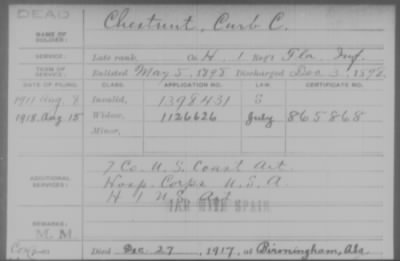 DEAD
NAME OF SOLDIER: Chestnut, Curb C.
SERVICE: Late rank, Co. H, 1 Reg't Fla. Inf.
TERM OF SERVICE: Enlisted May 5, 1898 Discharged Dec 3, 1898.
DATE OF FILING. CLASS. APPLICATION NO. LAW. CERTIFICATE NO.
1911 Aug. 8 Invalid, 1398431
1918 Aug 15 Widow, 1126626 July 865868
Minor,
7 Co. U.S. Coast Art.
ADDITIONAL SERVICES: Hosp. Corps U.S.A.
H 1 U.S. Art
WAR WITH SPAIN
REMARKS:
M.M
Died Dec. 27, 1917, at Birmingham, Ala.